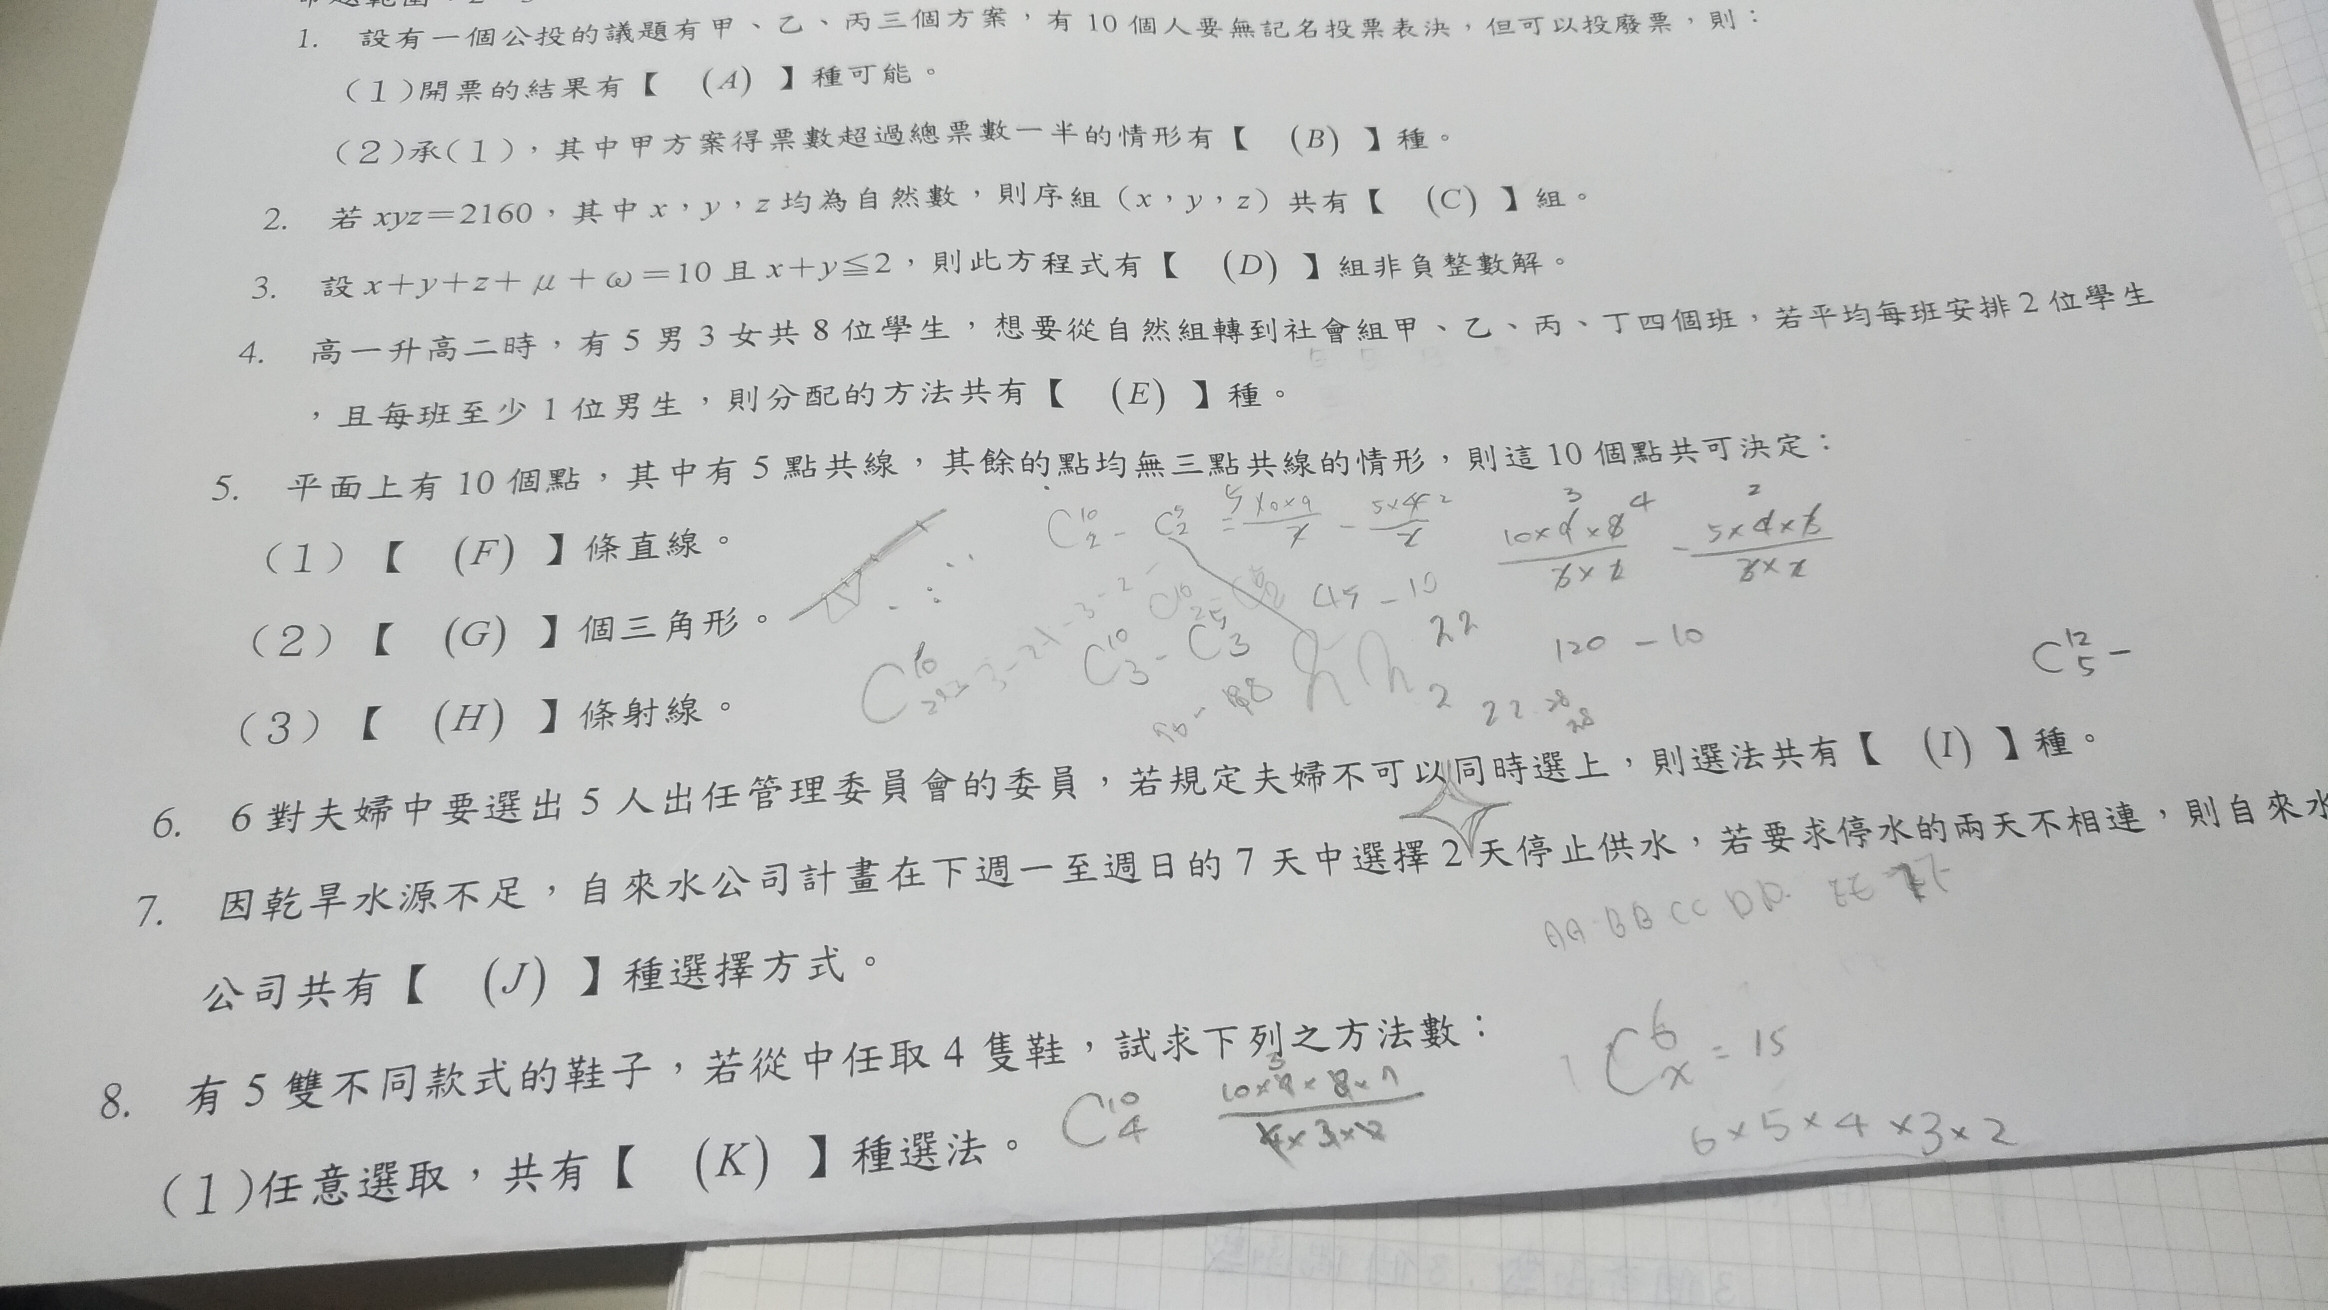 1. 設有一個公投的議題有甲、乙、丙三個方案，有 10 個人要無記名投票表決，但可以投廢票，則：
(1)開票的結果有【 (A) 】種可能。
(2)承(1)，其中甲方案得票數超過總票數一半的情形有【 (B) 】種。
2. 若 xyz＝2160，其中 x，y，z 均為自然數，則序組（x，y，z）共有【 (C) 】組。
3. 設 x＋y＋z＋μ＋ω＝10 且 x＋y≦2，則此方程式有【 (D) 】組非負整數解。
4. 高一升高二時，有 5 男 3 女共 8 位學生，想要從自然組轉到社會組甲、乙、丙、丁四個班，若平均每班安排 2 位學生
，且每班至少 1 位男生，則分配的方法共有【 (E) 】種。
5. 平面上有 10 個點，其中有 5 點共線，其餘的點均無三點共線的情形，則這 10 個點共可決定：
(1)【 (F) 】條直線。
(2)【 (G) 】個三角形。
(3)【 (H) 】條射線。
45 - 10
120 - 10
6. 6 對夫婦中要選出 5 人出任管理委員會的委員，若規定夫婦不可以同時選上，則選法共有【 (I) 】種。
7. 因乾旱水源不足，自來水公司計畫在下週一至週日的 7 天中選擇 2 天停止供水，若要求停水的兩天不相連，則自來水
AA BB CC DD EE
公司共有【 (J) 】種選擇方式。
8. 有 5 雙不同款式的鞋子，若從中任取 4 隻鞋，試求下列之方法數：
(1)任意選取，共有【 (K) 】種選法。
6×5×4×3×2